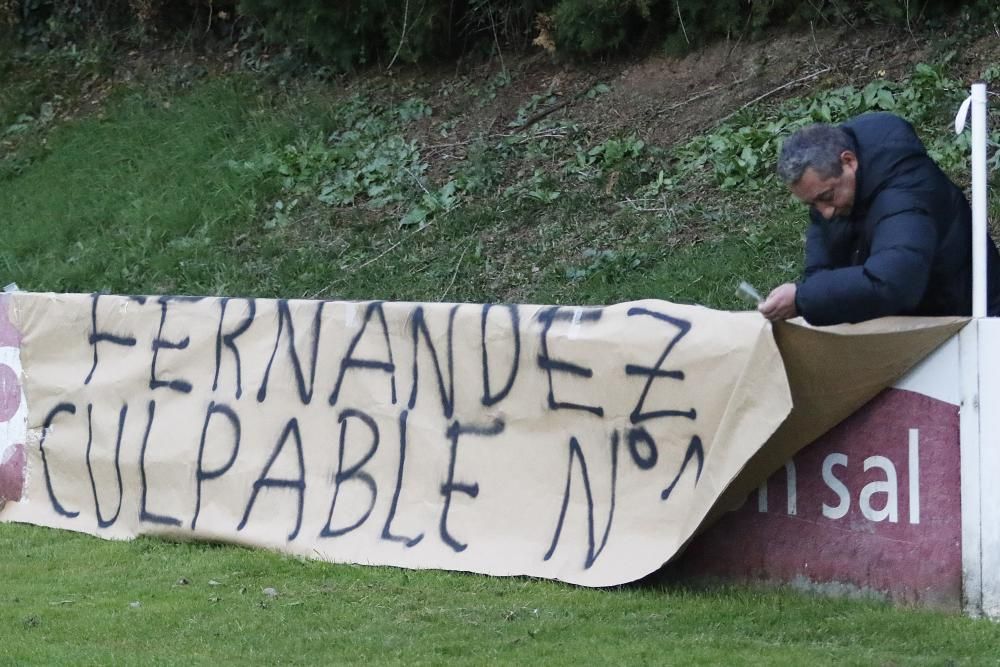 FERNANDEZ
CULPABLE Nº 1
sal